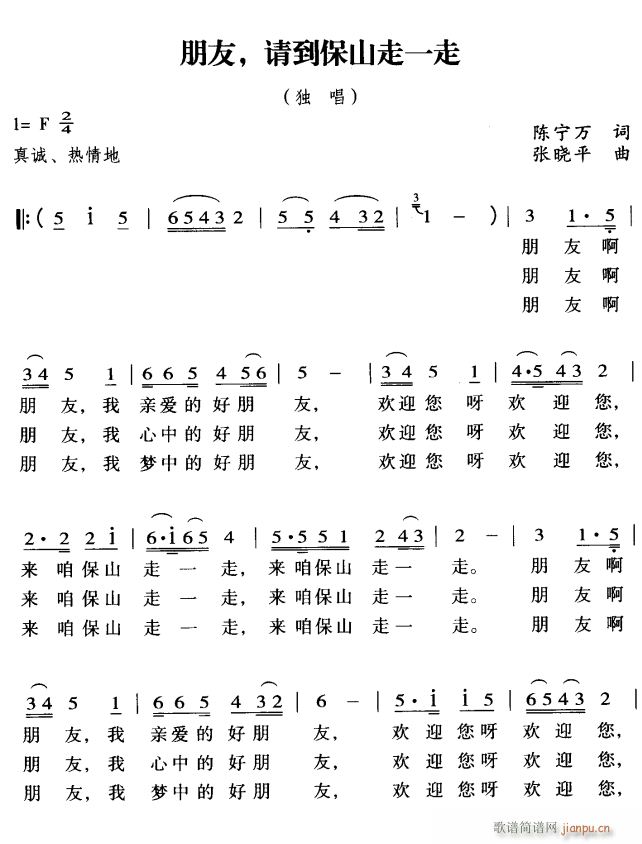 朋友，请到保山走一走
（独 唱）
1= F 2/4
陈宁万 词
真诚、热情地
张晓平 曲
3
‖:( 5 i 5 | 65432 | 55 4 32 | 1 - ) | 3 1·5 |
朋 友 啊
朋 友 啊
朋 友 啊
34 5 1 | 665 4 56 | 5 - | 34 5 1 | 4·5 43 2 |
朋 友, 我 亲爱的好朋 友, 欢迎您呀 欢 迎 您,
朋 友, 我 心中的好朋 友, 欢迎您呀 欢 迎 您,
朋 友, 我 梦中的好朋 友, 欢迎您呀 欢 迎 您,
2·2 2i | 6·i65 4 | 5·551 | 2 43 | 2 - | 3 1·5 |
来 咱保山 走 一 走, 来 咱保山 走 一 走。 朋 友 啊
来 咱保山 走 一 走, 来 咱保山 走 一 走。 朋 友 啊
来 咱保山 走 一 走, 来 咱保山 走 一 走。 朋 友 啊
34 5 1 | 665 4 32 | 6 - | 5·i i5 | 6543 2 |
朋 友, 我 亲爱的好朋 友, 欢 迎您呀 欢迎 您,
朋 友, 我 心中的好朋 友, 欢 迎您呀 欢迎 您,
朋 友, 我 梦中的好朋 友, 欢 迎您呀 欢迎 您,
歌谱简谱网 jianpu.cn